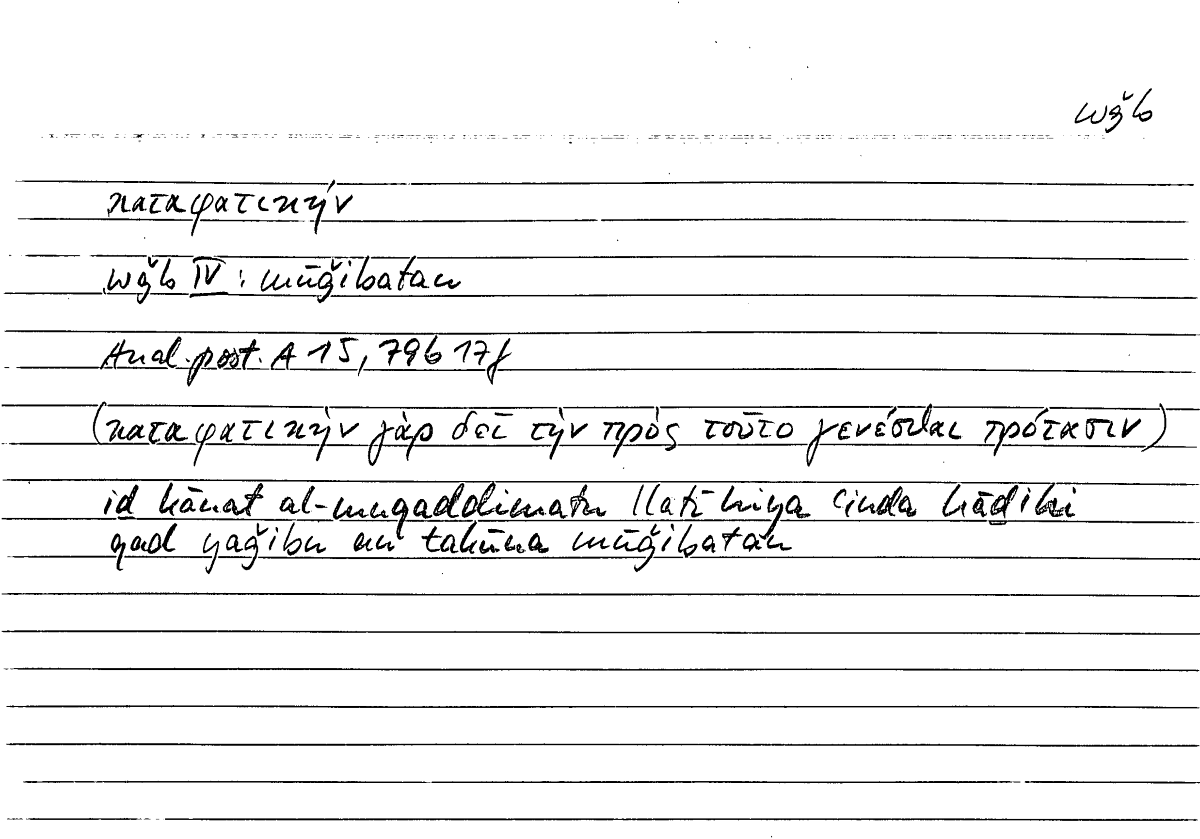 wǧb
καταφατικήν
wǧb IV : mūǧibatan
Anal. post. A 15, 79b 17f
(καταφατικὴν γὰρ δεῖ τὴν πρὸς τοῦτο γενέσθαι πρότασιν)
iḏ kānat al-muqaddimatu llatī hiya ʿinda hāḏihi
qad yaǧibu an takūna mūǧibatan